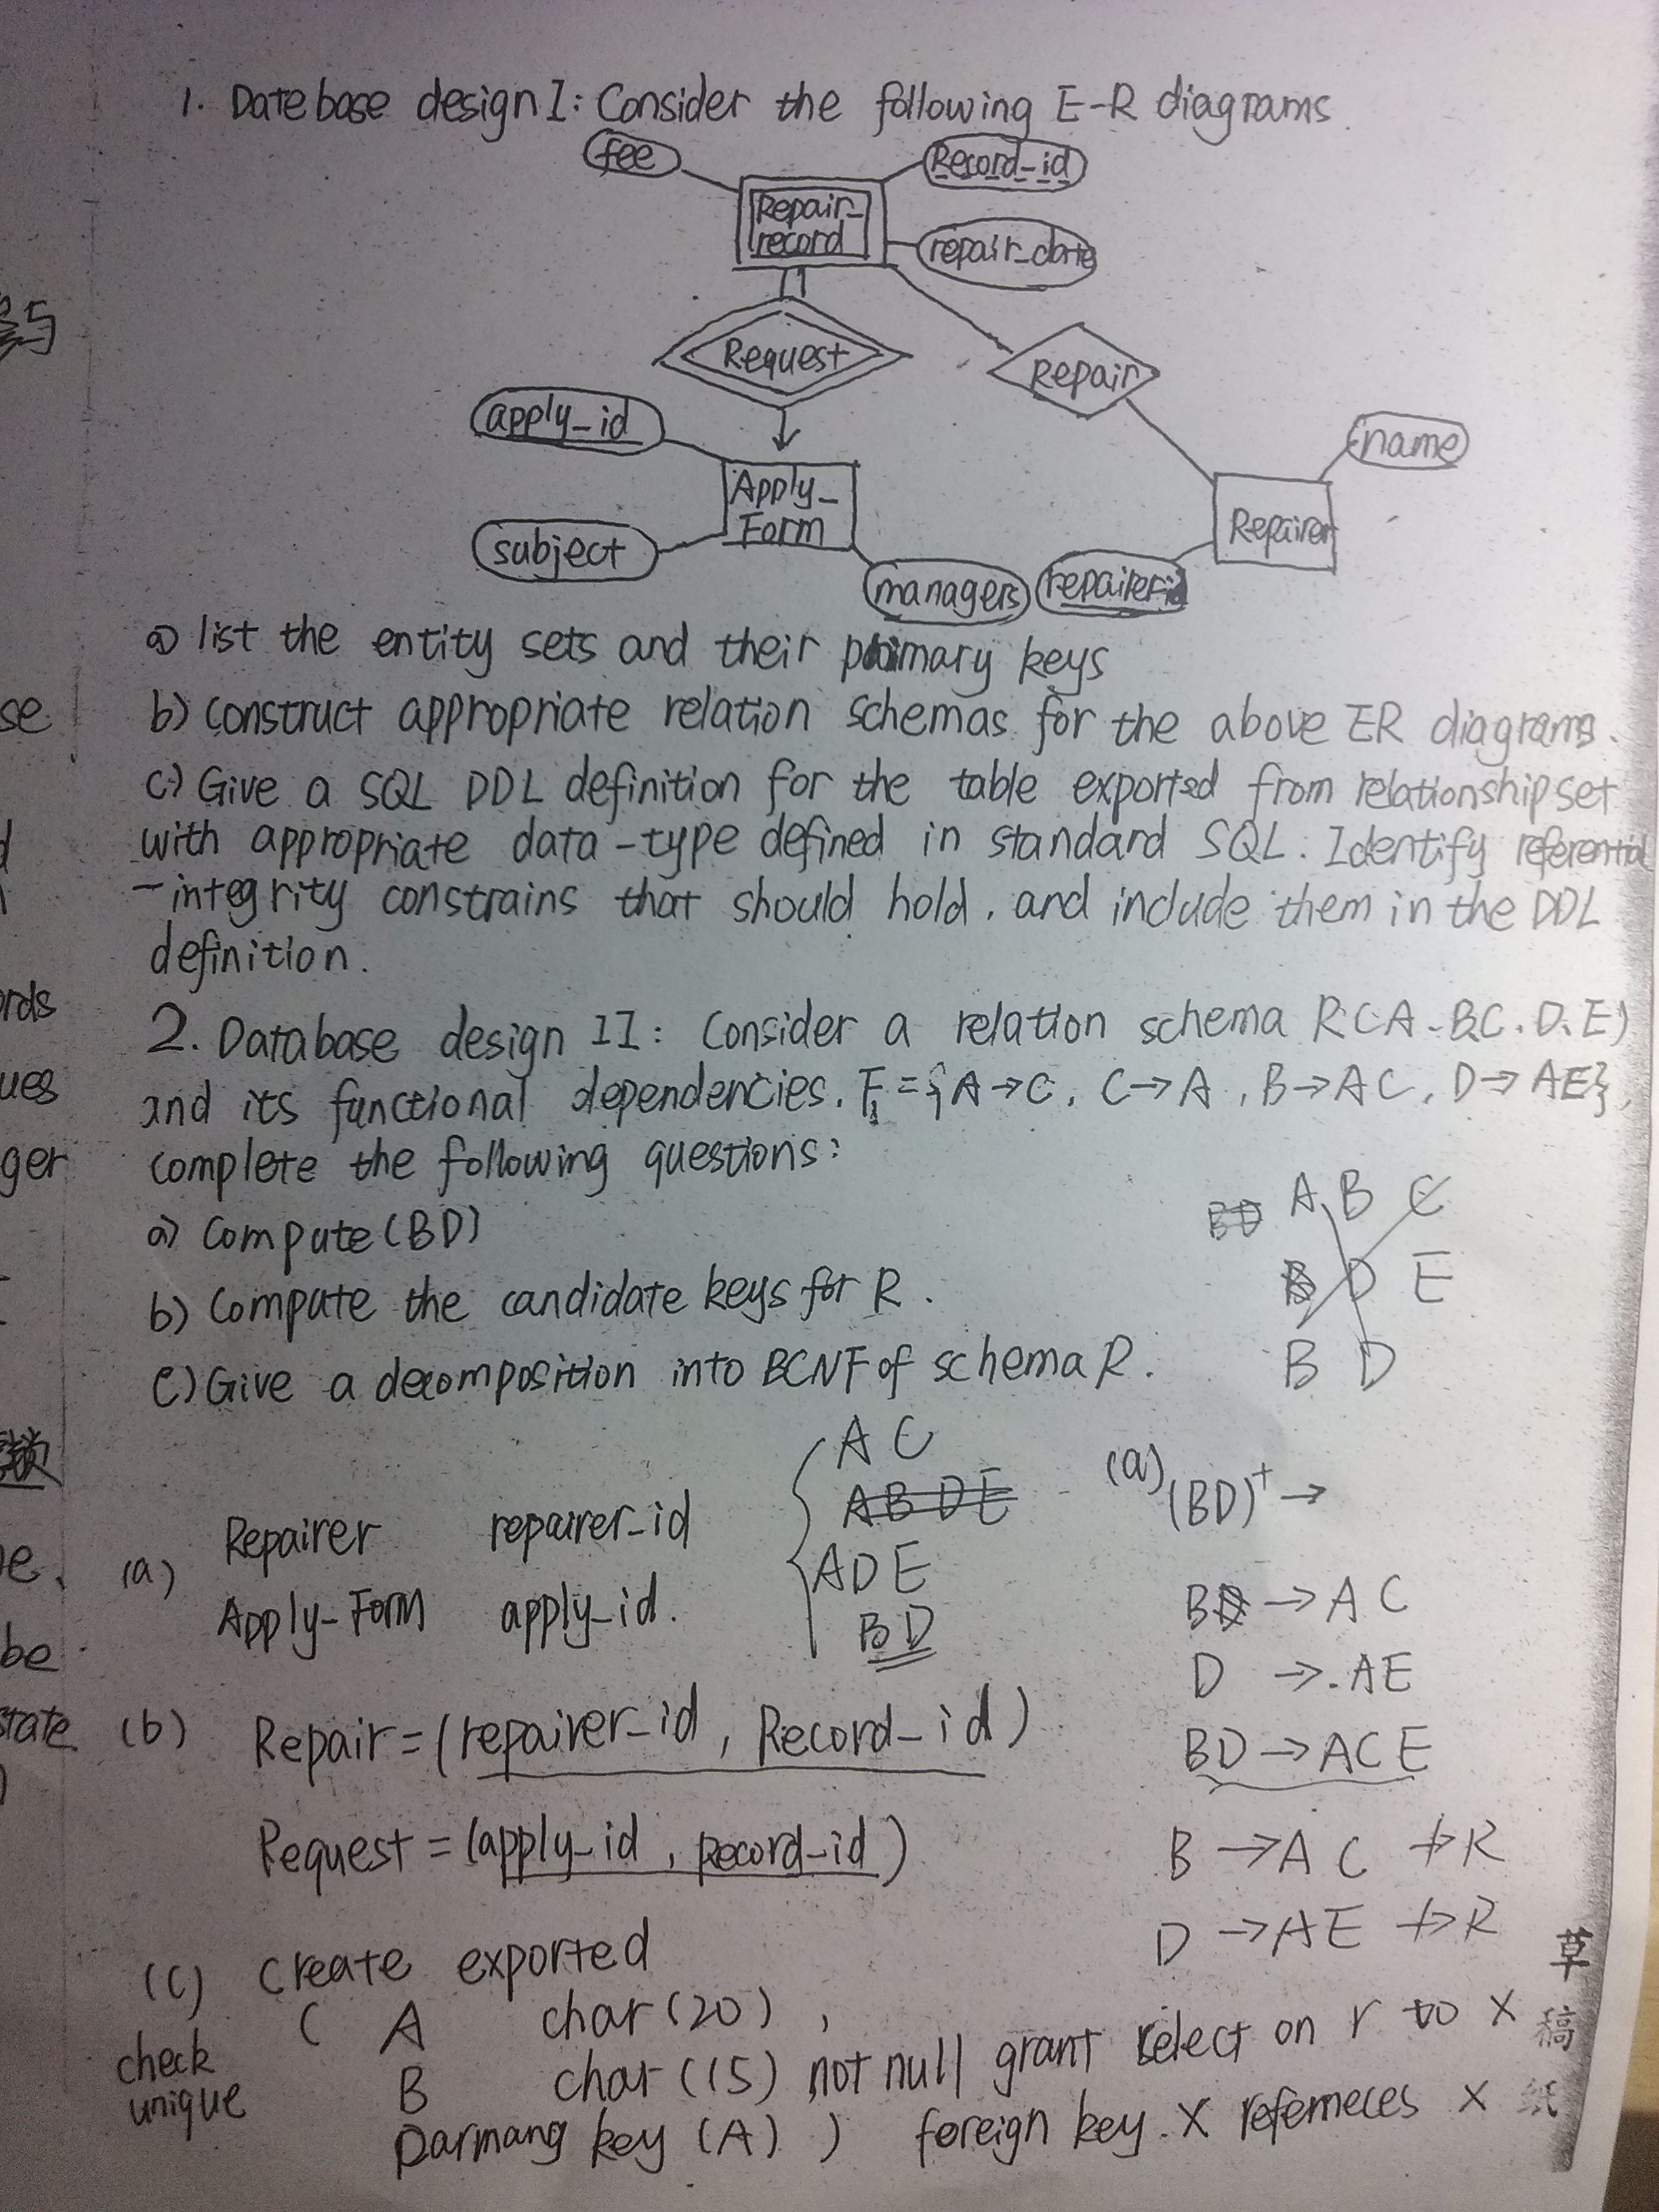 1. Datebase design I: Consider the following E-R diagrams.
fee
Record_id
Repair_
record
repair_date
Request
Repair
apply_id
name
Apply_
Form
Repairer
subject
managers
a) list the entity sets and their primary keys
b) construct appropriate relation schemas for the above ER diagrams.
c) Give a SQL DDL definition for the table exported from relationship set
with appropriate data-type defined in standard SQL. Identify referential
-integrity constrains that should hold, and include them in the DDL
definition.
2. Database design II: Consider a relation schema R(A.B.C.D.E)
and its functional dependencies. F={A→C, C→A, B→AC, D→AE},
complete the following questions:
a) Compute (BD)
b) Compute the candidate keys for R.
c) Give a decomposition into BCNF of schema R.
A B C
B D E
B D
A C
A B D E
A D E
B D
(a) (BD)+ →
B → A C
D → AE
BD → ACE
B → A C ↛ R
D → AE ↛ R
(a) Repairer repairer_id
Apply-Form apply_id.
(b) Repair = (repairer_id, Record_id)
Request = (apply_id, Record_id)
(c) create exported
( A char(20),
check
unique
B char(15) not null grant select on r to X
key (A) ) foreign key. X refemeces X
草
稿
纸
se
ords
ues
ger
be
state